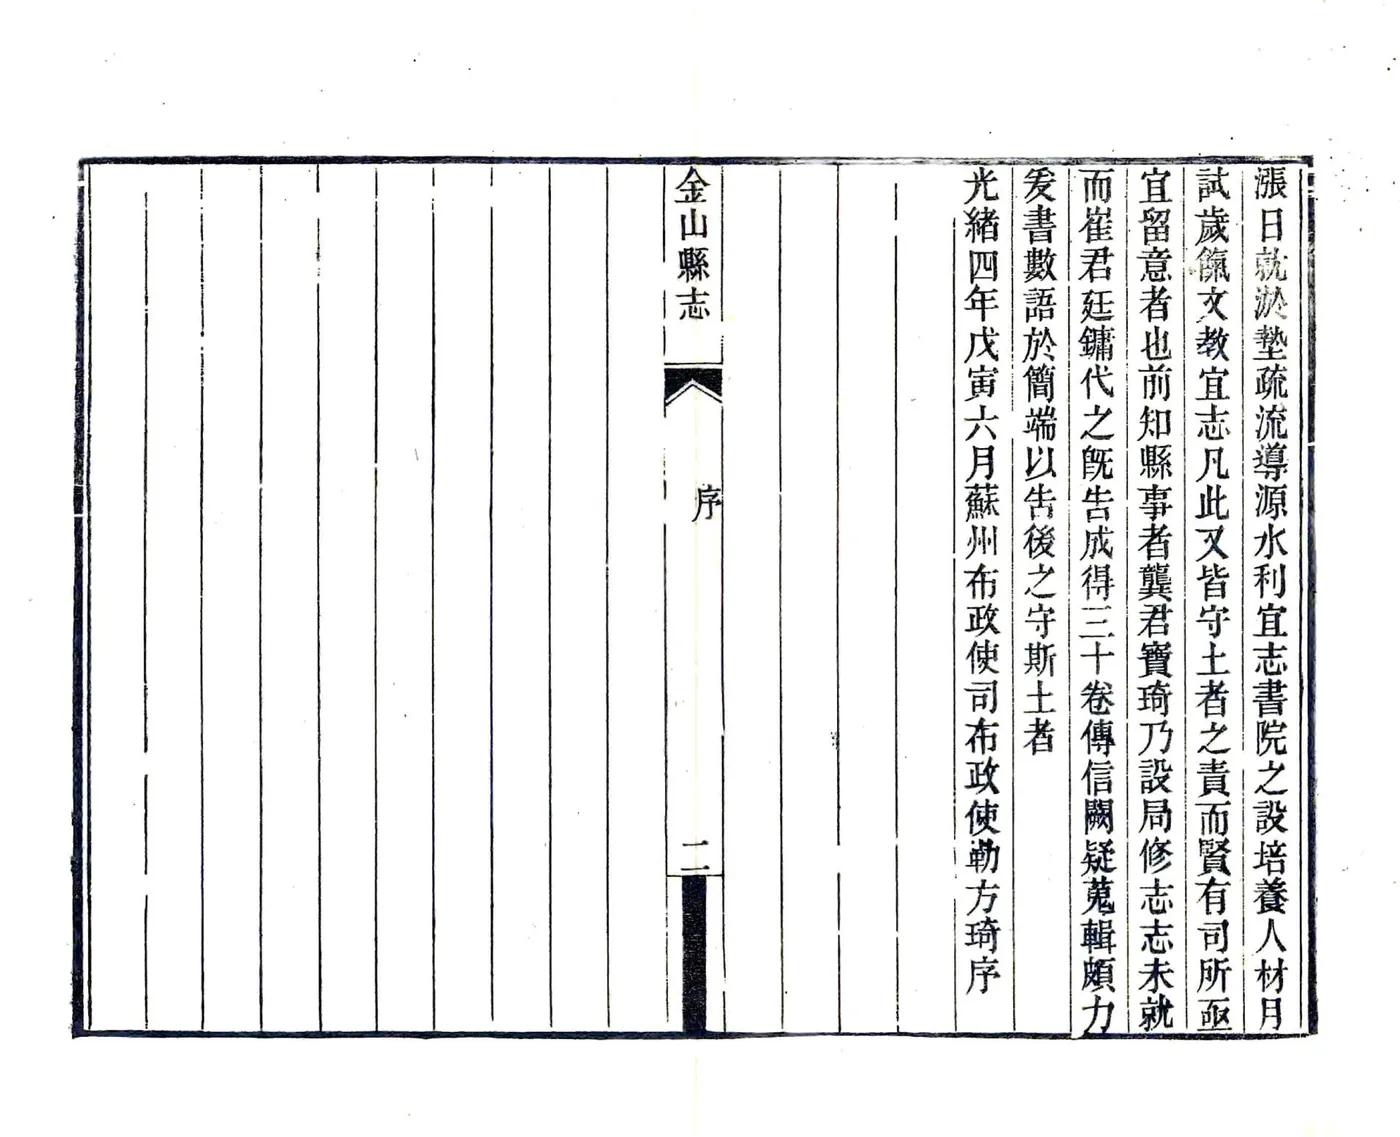 漲日就淤墊疏流導源水利宜志書院之設培養人材月
試歲餼文教宜志凡此又皆守土者之責而賢有司所亟
宜留意者也前知縣事者龔君寶琦乃設局修志志未就
而崔君廷鏞代之旣告成得三十卷傳信闕疑蒐輯頗力
爰書數語於簡端以告後之守斯土者
光緒四年戊寅六月蘇州布政使司布政使勒方琦序
金山縣志
序
二